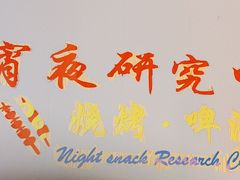 宵夜研究
烧烤·啤
Night snack Research C